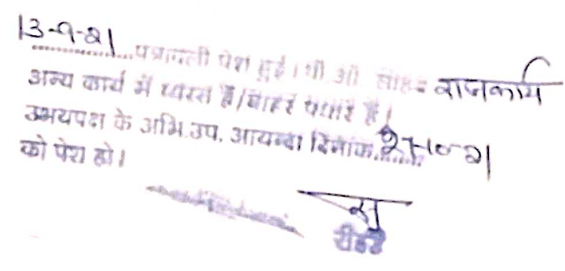 13-9-21 पत्रावली पेश हुई। पी. ओ. साहब राजकार्य
अन्य कार्य में व्यस्त है/बाहर पधारे है।
उभयपक्ष के अभि. उप. आयन्दा दिनांक 27-10-21
को पेश हो।
रीडर